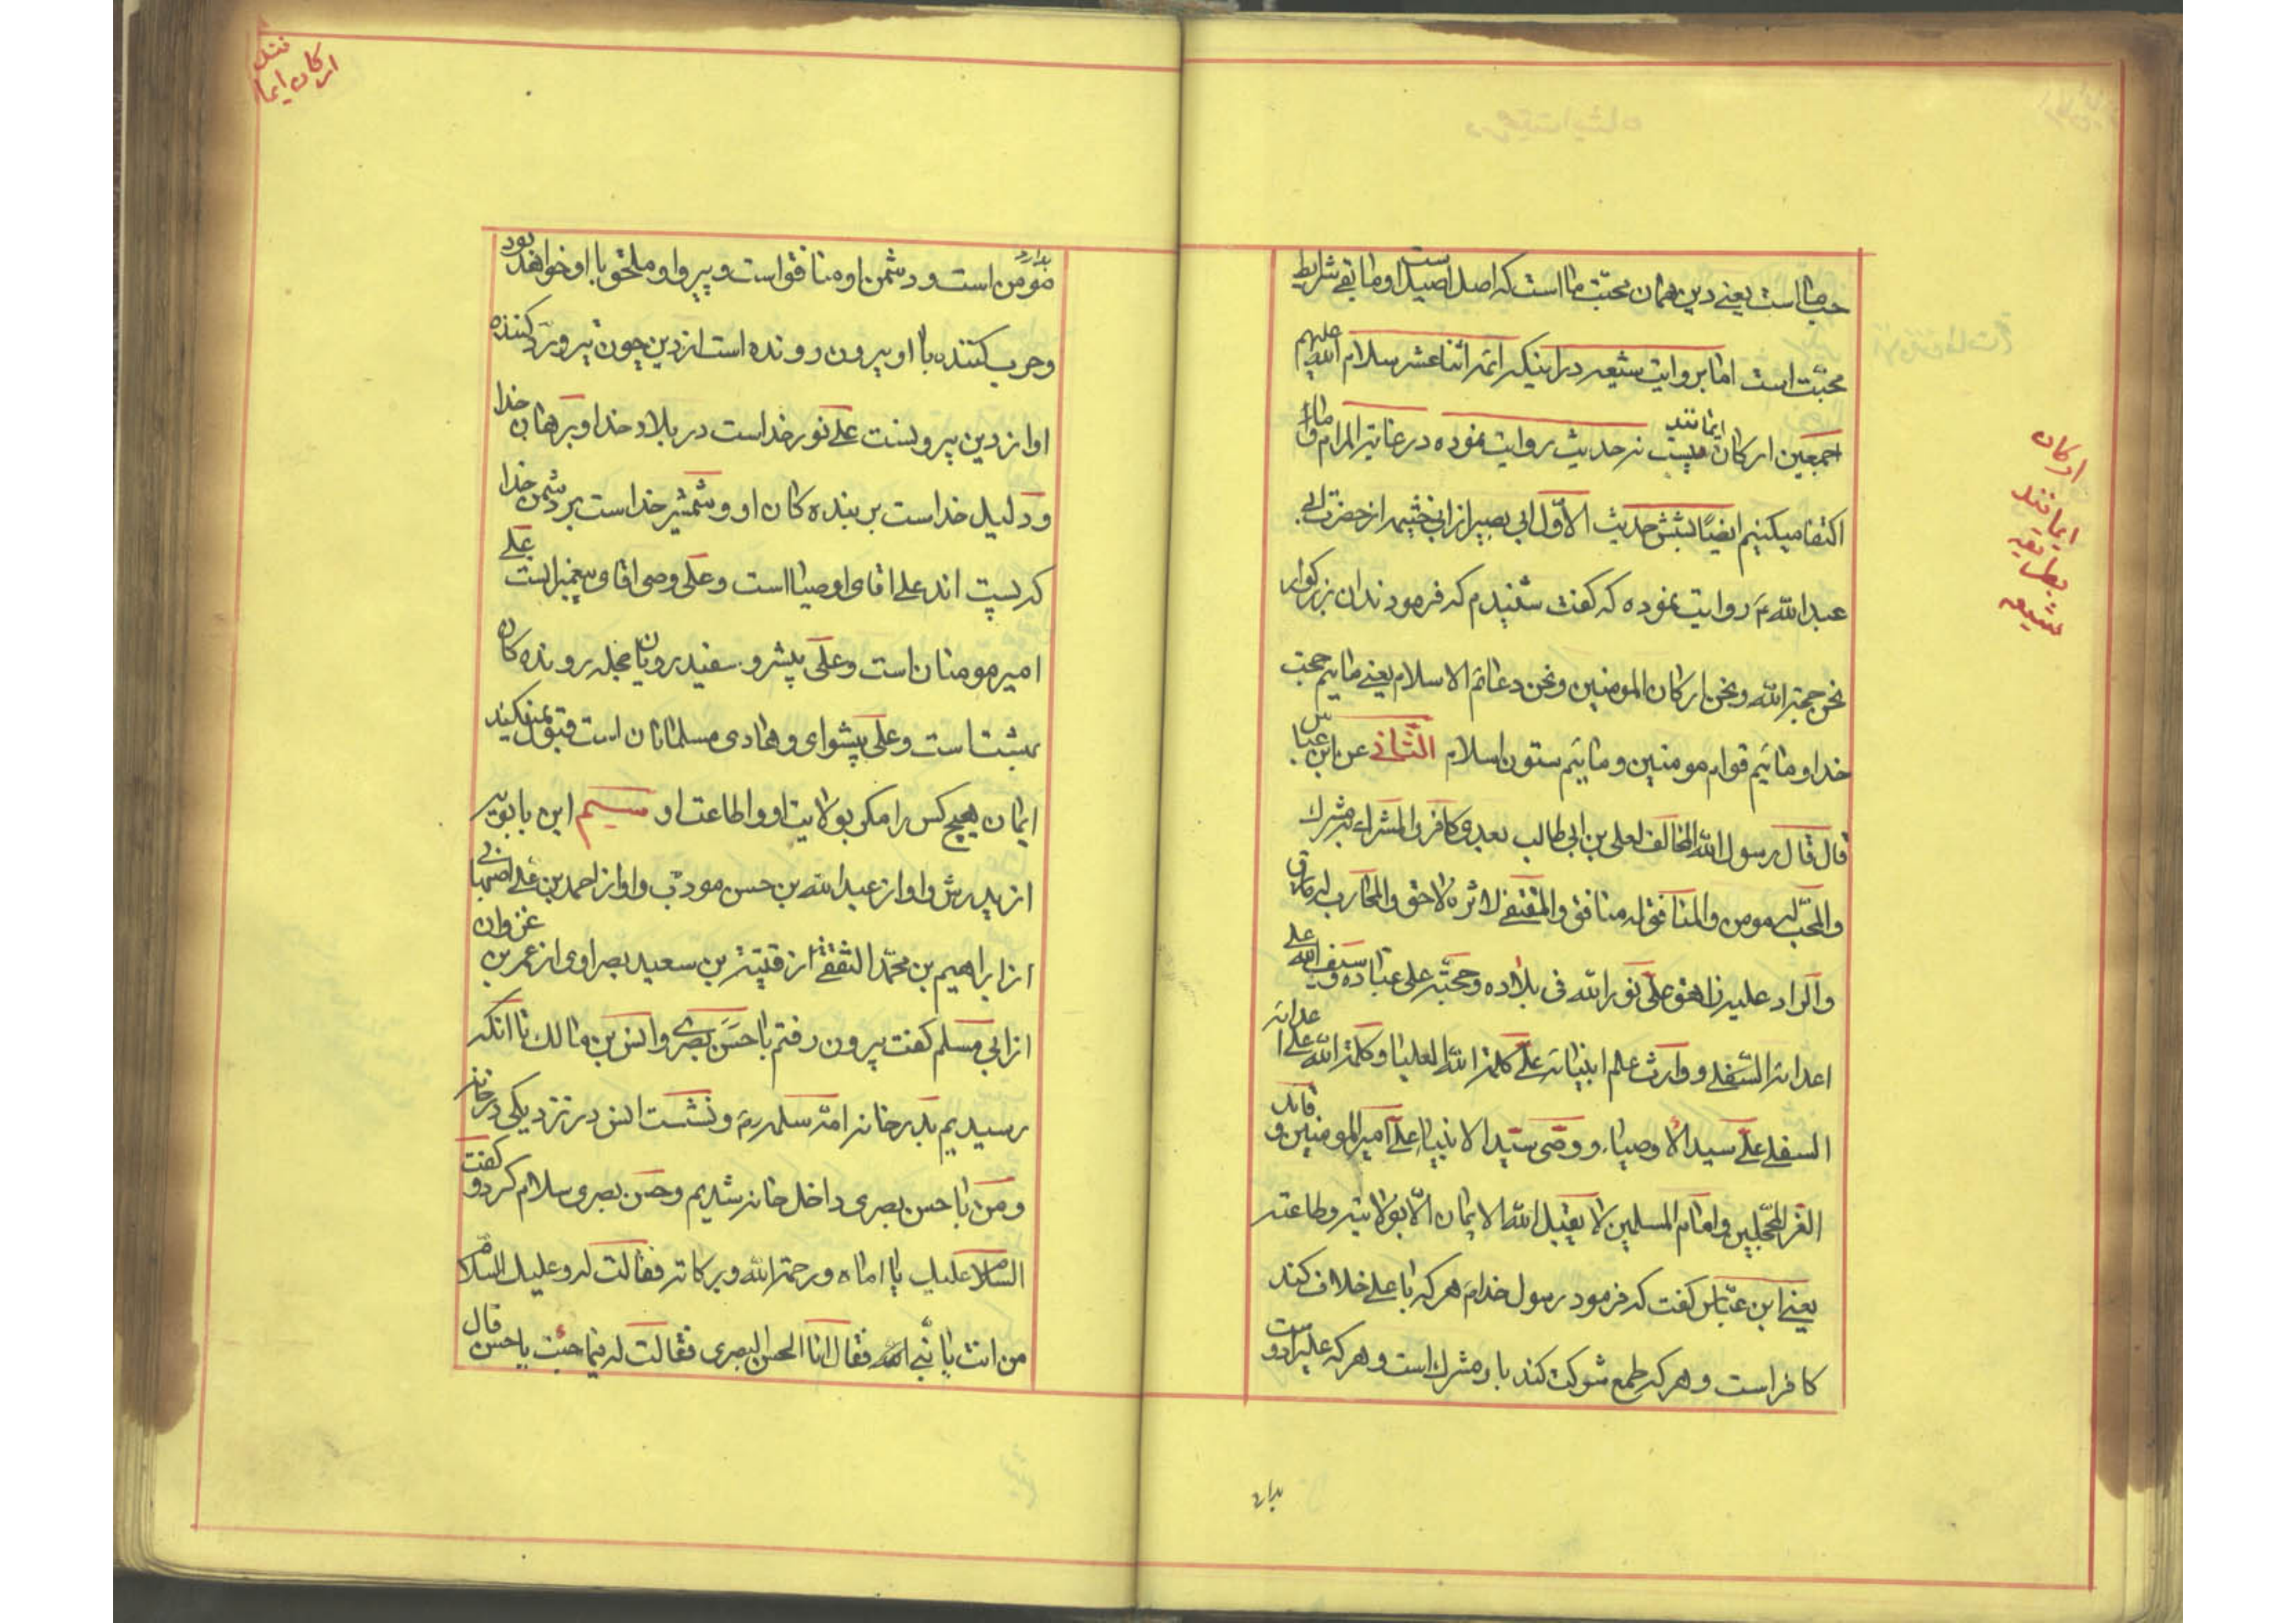 حب ما است یعنی دین همان محبّت ما است که اصل اصیل است او ما بقی شرایط
محبّت است اما بروایت شیعه در اینکه ائمه اثنا عشر سلام الله علیهم
اجمعین ارکان ایمانند نه حدیث روایت نموده در غایة المرام و ما
اکتفا میکنیم ایضًا بشش حدیث الأوّل ابی بصیر از ابی خثیمه از حضرت ابی
عبد الله ع روایت نموده که گفت شنیدم که فرمودند ان بزرگوار
نحن حجة الله و نحن ارکان المومنین و نحن دعائم الاسلام یعنی مائیم حجت
خدا و مائیم قوام مومنین و مائیم ستون اسلام الثّانی عن ابن عباس
قال قال رسول الله المخالف لعلی بن ابی طالب بعدی کافر و المشرك به مشرك
و المحبّ له مومن و المنافق له منافق و المقتفی لاثره لاحق و المحارب له مارق
و الراد علیه زاهق علی نور الله فی بلاده و حجّته علی عباده و سیف الله علی
اعدائه السّفلی و وارث علم انبیائه علی کلمة الله العلیا و کلمة الله علی اعدائه
السفلی علی سید الأوصیاء و وصی سیّد الانبیاء علی امیر المومنین و قاید
الغر المحجّلین و امام المسلمین لا یقبل الله الایمان الّا بولایته و طاعته
یعنی ابن عبّاس گفت که فرمود رسول خدا ص هر که با علی خلاف کند
کافر است و هر که طمع شوکت کند با و مشرك است و هر که علیرا دوست
بدارد
ارکان
ایمانند
بطریقه
شیعه
بدارد مومن است و دشمن او منافق است و پیرو او ملحق با او خواهد بود
و حرب کننده با او بیرون رونده است از دین چون تیر و ردّ کننده
او از دین بیرونست علی نور خداست در بلاد خدا و برهان خدا
و دلیل خداست بر بنده کان او و شمشیر خداست بر دشمن خدا
که پست اند علی اقای اوصیا است و علی وصی اقای پیغمبرانست علی
امیر مومنان است و علی پیشرو سفید رویان محجله رونده کان
بهشت است و علی پیشوای و هادی مسلمانان است قبول نمیکند
ایمان هیچ کس را مگر بولایت او و اطاعت او سیم ابن بابویه
از پدرش و او از عبد الله بن حسن مودّب و او از احمد بن علی اصفهانی
از ابراهیم بن محمّد الثقفی از قتیبة بن سعید بصراوی از عمر بن غزوان
از ابی مسلم گفت بیرون رفتم با حسن بصری و انس بن مالك تا انکه
رسیدیم بدر خانه امّ سلمه رض و نشست انس در نزدیکی در خانه
و من با حسن بصری داخل خانه شدیم و حسن بصری سلام کرد و گفت
السلام علیك یا اماه و رحمة الله و برکاته فقالت له و علیك السلام
من انت یا بنی فقال انا الحسن البصری فقالت له فیما جئت یا حسن قال
ارکان ایمانند